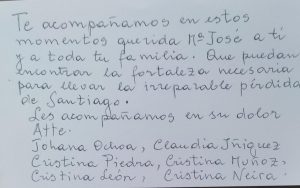 Te acompañamos en estos
momentos querida Mª José a ti
y a toda tu familia. Que puedan
encontrar la fortaleza necesaria
para llevar la irreparable pérdida
de Santiago.
Les acompañamos en su dolor
Atte.
Johana Ochoa, Claudia Iñiguez
Cristina Piedra, Cristina Muñoz,
Cristina León, Cristina Neira.